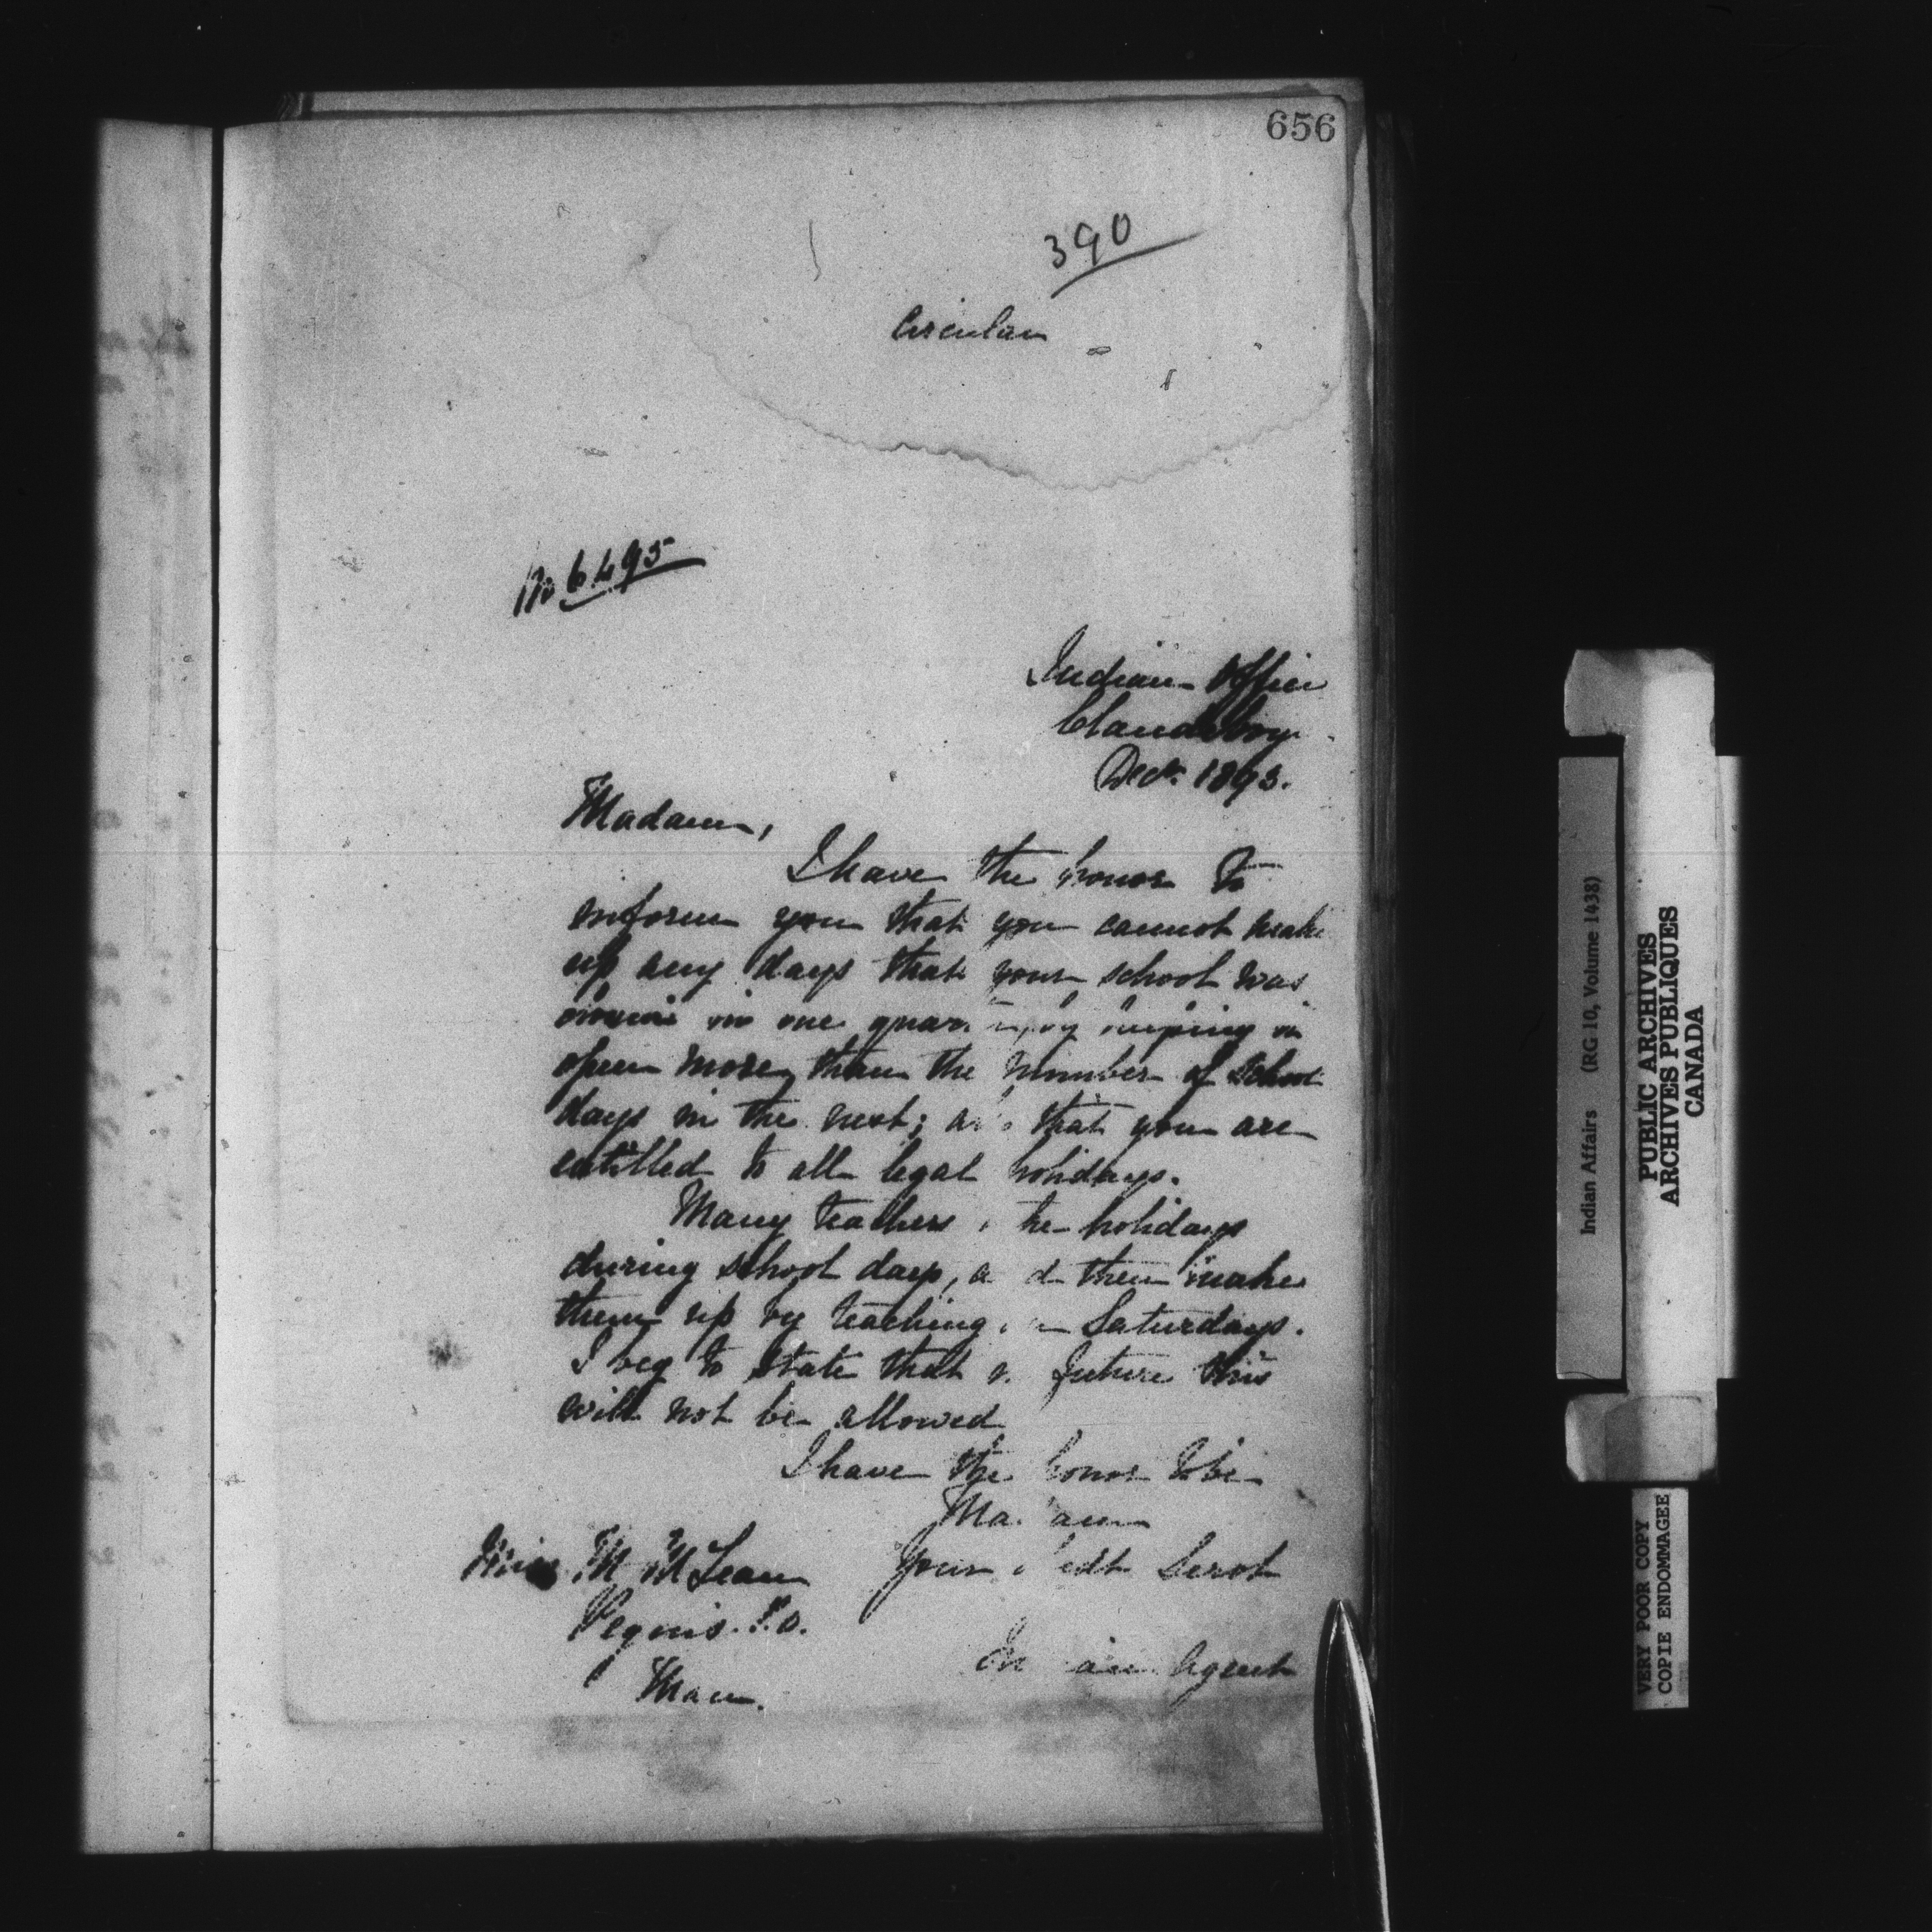 656
390
Circular
No 6495
Indian Office
Clandeboye
Dec. 1893.
Madam,
I have the honor to
inform you that you cannot make
up any days that your school was
in one quar by keeping it
open more than the number of School
days in the next; also that you are
entitled to all legal holidays.
Many teachers the holidays
during school days, and then make
them up by teaching on Saturdays.
I beg to state that in future this
will not be allowed
I have the honor to be
Madam
Your obedt Servt
Indian Agent
Miss M McLean
Peguis. P.O.
Man.
Indian Affairs (RG 10, Volume 1438)
PUBLIC ARCHIVES
ARCHIVES PUBLIQUES
CANADA
VERY POOR COPY
COPIE ENDOMMAGEE